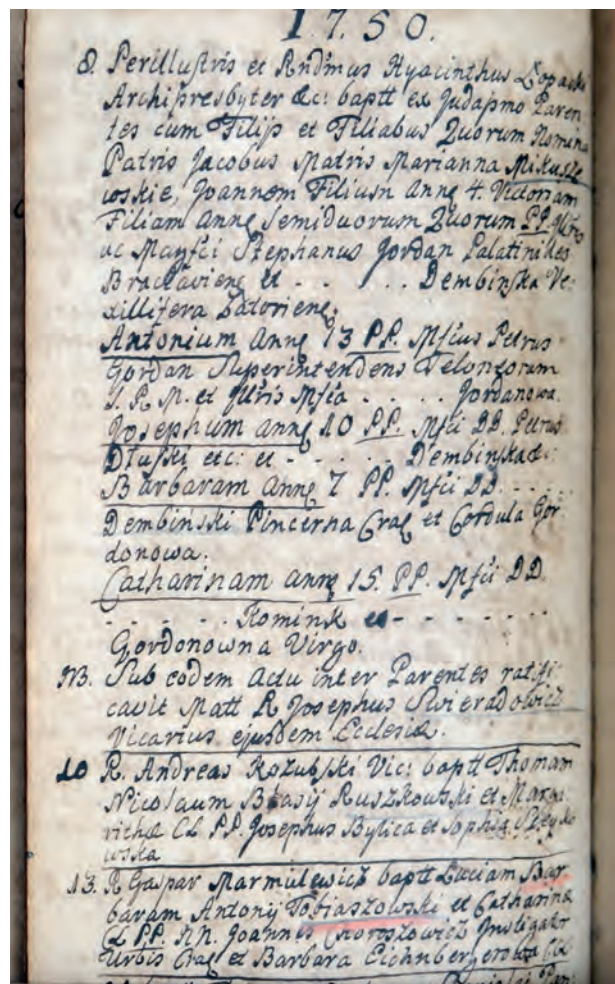 1.7.5 0.
8. Perillustris et Rndmus Hyacinthus Łopacki
Archipresbyter &c: baptt ex Judaismo Paren
tes cum Filijs et Filiabus Quorum Nomina
Patris Jacobus Matris Marianna Mikusze
wskie, Joannem Filium Anng 4. Victoriam
Filiam Anng Semiduorum Quorum PP. Illres
ac Magfci Stephanus Jordan Palatinides
Braclaviens et - - . . Dembinska Ve:
xillifera Zatoriens.
Antonium Anng 13 PP. Mfcus Petrus
Gordon Superintendens Teloneorum
S. R. M. et Illris Mfca - . . . Jordanowa.
Josephum Anng 10 PP. Mfci DD. Petrus
Dłuski etc: et - - . . . Dembinska &.
Barbaram Anng 7 PP. Mfci DD. - - . . .
Dembinski Pincerna Crac et Cordula Gor
donowa.
Catharinam anng 15. PP. Mfci DD.
- - - . . Kominsk et - - - - - -
Gordonowna Virgo.
NB. Sub eodem Actu inter Parentes ratifi
cavit Matt R Josephus Swieradowicz
Vicarius ejusdem Ecclesiæ.
10 R. Andreas Kozubski Vic: baptt Thomam
Nicolaum Blasij Ruszkowski et Marga
rithæ CL PP. Josephus Bylica et Sophia
wska
13. R Gaspar Marmulewicz baptt Luciam Bar
baram Antonij Tobiaszowski et Catharina
CL PP. NN. Joannes Chorosłowicz Instigator
Urbis Crac et Barbara Eichnbergerowa CL